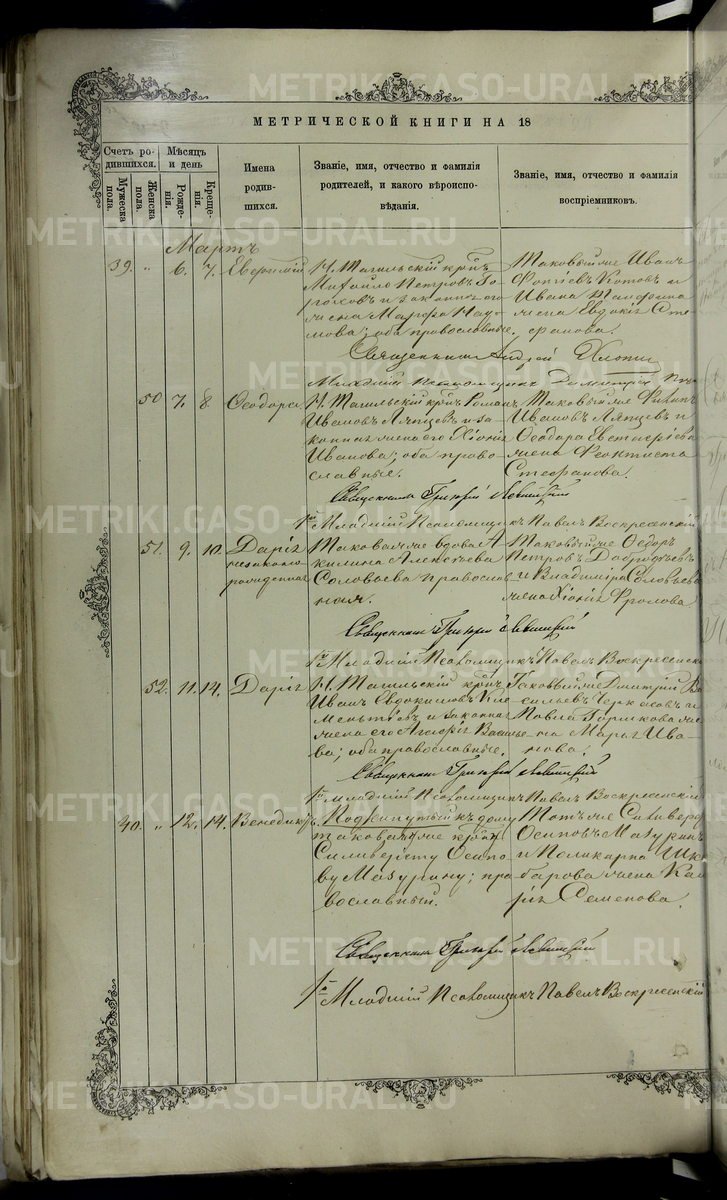 МЕТРИЧЕСКОЙ КНИГИ НА 18
Счетъ ро-
дившихся.
Мужеска
пола.
Женска
пола.
Мѣсяцъ
и день
Рожде-
нія.
Креще-
нія.
Имена
родив-
шихся.
Званіе, имя, отчество и фамилія
родителей, и какого вѣроиспо-
вѣданія.
Званіе, имя, отчество и фамилія
воспріемниковъ.
Мартъ
39. „ 6. 7. Евѳимій
Н. Тагильскій крᵗⁿъ
Михаило Петровъ Го-
роховъ и законная его
жена Марѳа Нау-
мова; оба православные.
Таковый же Иванъ
Фотіевъ Котовъ и
Ивана
жена Евдокія Сте-
фанова.
Священникъ Андрей
Младшій Псаломщикъ Димитрій
50 7. 8. Ѳеодора
Н. Тагильскій крᵗⁿъ Романъ
Ивановъ Ляпцевъ и за-
конная жена его Хіонія
Иванова; оба право-
славные.
Таковый же Филипъ
Ивановъ Ляпцевъ и
Ѳеодора Евстафіева
жена Феоктиста
Стефанова.
Священникъ Григорій Левитскій
Младшій Псаломщикъ Павелъ Воскресенскій
51. 9. 10. Дарія
незаконно-
рожденная
Таковая же вдова А-
килина Алексѣева
Соловьева православ-
ная.
Таковый же Ѳедоръ
Петровъ
и Владиміра Соловьева
жена Хіонія Фролова
Священникъ Григорій Левитскій
Младшій Псаломщикъ Павелъ Воскресенскій
52. 11. 14. Дарія
Н. Тагильскій крᵗⁿъ
Иванъ Евдокимовъ Кле-
ментьевъ и законная
жена его Агафія Василье-
ва; оба православные.
Таковый же Дмитрій Ва-
сильевъ Черкасовъ и
Павла Горикова же-
на Марья Ива-
нова.
Священникъ Григорій Левитскій
Младшій Псаломщикъ Павелъ Воскресенскій
40. „ 12. 14. Венедиктъ
Подкинутый къ дому
таковаго же крᵗⁿ
Силиверсту Осипо-
ву Мазурину; пра-
вославный.
Тотъ же Силиверстъ
Осиповъ Мазуринъ
и Поликарпа Шка-
барова жена Ма-
рія Семенова.
Священникъ Григорій Левитскій
Младшій Псаломщикъ Павелъ Воскресенскій
METRIKI.GASO-URAL.RU